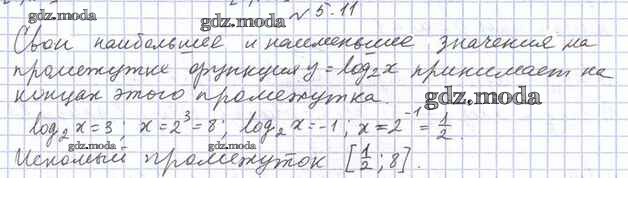 gdz.moda № 5.11 gdz.moda
Свои наибольшее и наименьшее значения на
промежутке функция y = log₂x принимает на
концах этого промежутка.
gdz.moda
log₂x = 3; x = 2³ = 8; log₂x = -1; x = 2⁻¹ = 1/2.
gdz.moda gdz.moda
Искомый промежуток [1/2; 8].